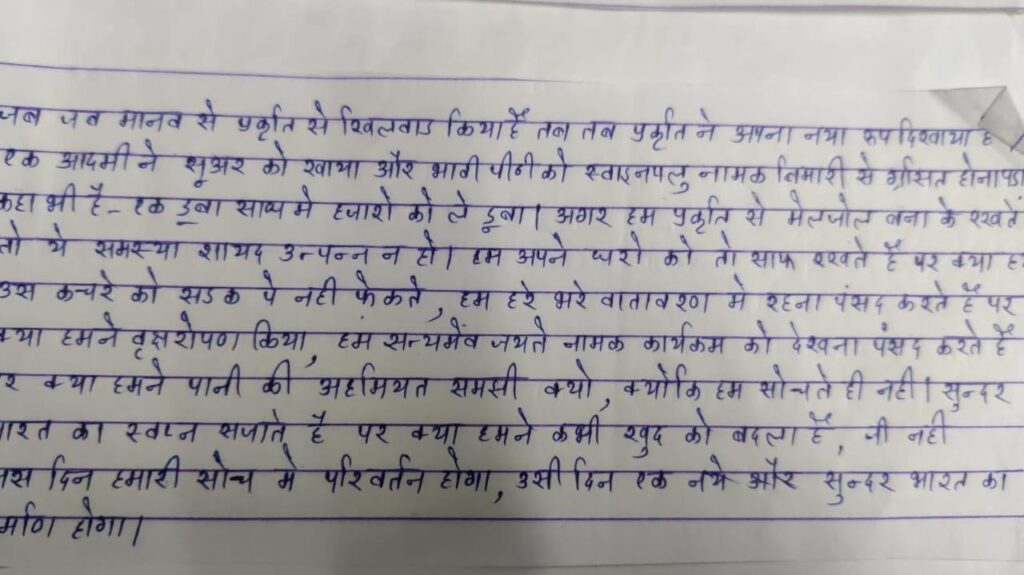 जब जब मानव से प्रकृति से खिलवाड किया है तब तब प्रकृति ने अपना नया रूप दिखाया है
एक आदमी ने सूअर को खाया और भावी पीढी को स्वाइनफ्लु नामक बिमारी से ग्रसित होना पडा
कहा भी है - एक डूबा साथ मे हजारो को ले डूबा। अगर हम प्रकृति से मेलजोल बना के रखते
तो ये समस्या शायद उत्पन्न न हो। हम अपने घरो को तो साफ रखते है पर क्या
उस कचरे को सडक पे नही फेकते, हम हरे भरे वातावरण मे रहना पंसद करते है पर
क्या हमने वृक्षरोपण किया, हम सत्यमेंव जयते नामक कार्यकम को देखना पंसद करते है
क्या हमने पानी की अहमियत समझी क्यो, क्योकि हम सोचते ही नही। सुन्दर
भारत का स्वप्न सजाते है पर क्या हमने कभी खुद को बदला है, जी नही
दिन हमारी सोच मे परिवर्तन होगा, उसी दिन एक नये और सुन्दर भारत का
होगा।